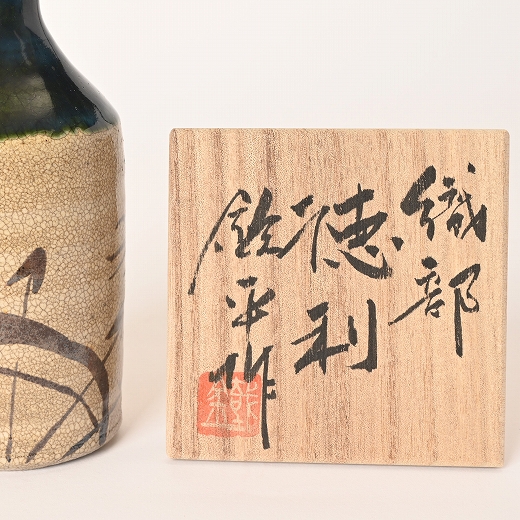 織部
徳利
鈴平作